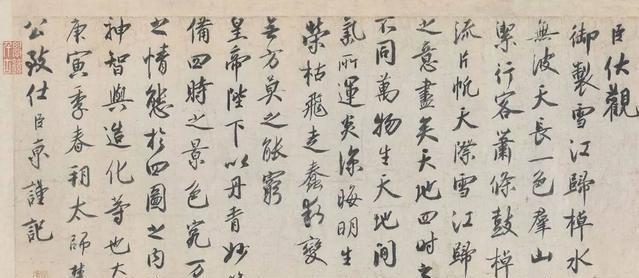 臣伏觀
御製雪江歸棹水
無波天長一色羣山
潔行客蕭條鼓棹
流片帆天際雪江歸
之意盡矣天地四時之
不同萬物生天地間
氣所運炎涼晦明生
榮枯飛走蠢動變
無方莫之能窮
皇帝陛下以丹青妙
備四時之景色究万
之情態於四圖之內
神智與造化等也大
庚寅季春朔太師楚
公致仕臣京謹記